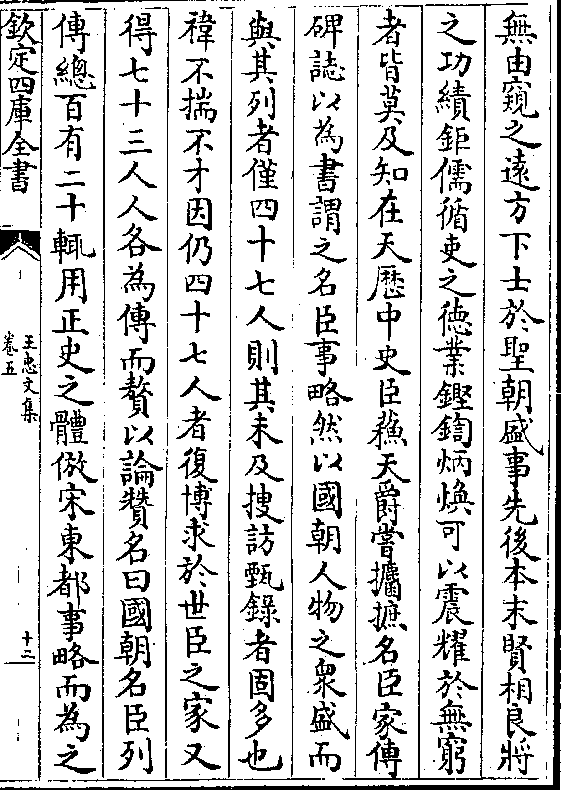 無由窺之遠方下士於聖朝盛事先後本末賢相良將
之功績鉅儒循吏之徳業鏗鍧炳煥可以震耀於無窮
者皆莫及知在天歴中史臣蘓天爵嘗攟摭名臣家傳
碑誌以為書謂之名臣事略然以國朝人物之衆盛而
與其列者僅四十七人則其未及搜訪甄錄者固多也
禕不揣不才因仍四十七人者復博求於世臣之家又
得七十三人人各為傳而贅以論贊名曰國朝名臣列
傳總百有二十輒用正史之體倣宋東都事略而為之
欽定四庫全書
王忠文集
卷五
十二